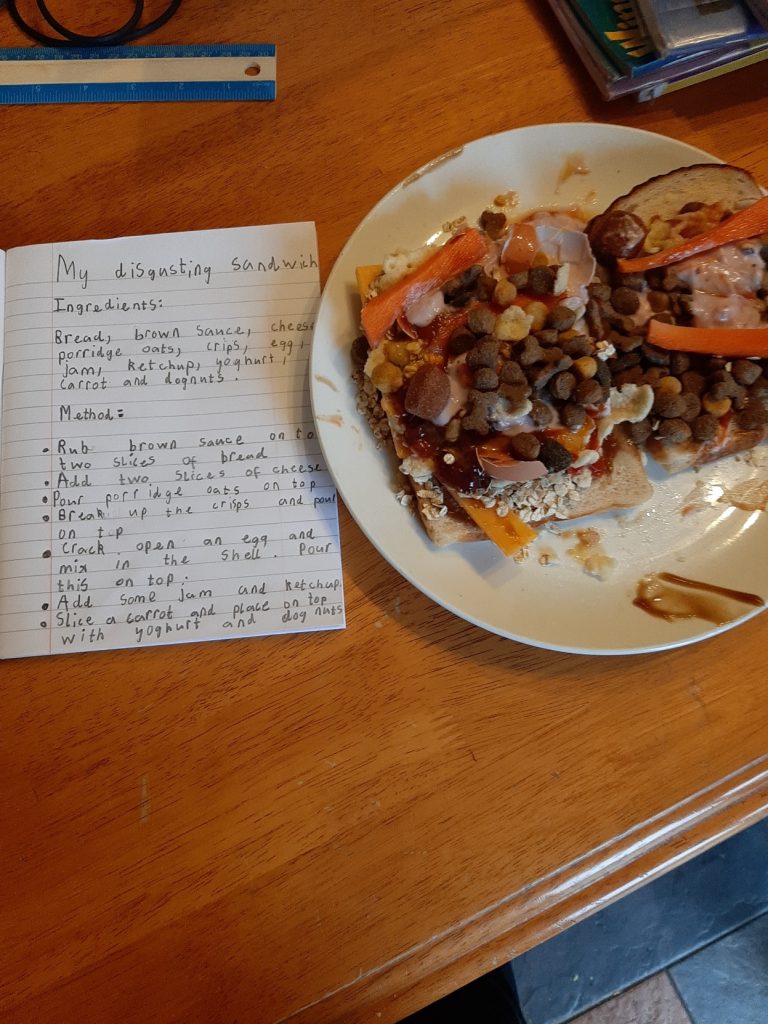 My disgusting sandwich
Ingredients:
Bread, brown sauce, cheese
porridge oats, crips, egg,
jam, ketchup, yoghurt,
carrot and dognuts.
Method:
• Rub brown sauce on to
two slices of bread
• Add two slices of cheese
• Pour porridge oats on top
• Break up the crisps and pour
on top
• Crack open an egg and
mix in the shell. Pour
this on top.
• Add some jam and ketchup.
• Slice a carrot and place on top
with yoghurt and dog nuts